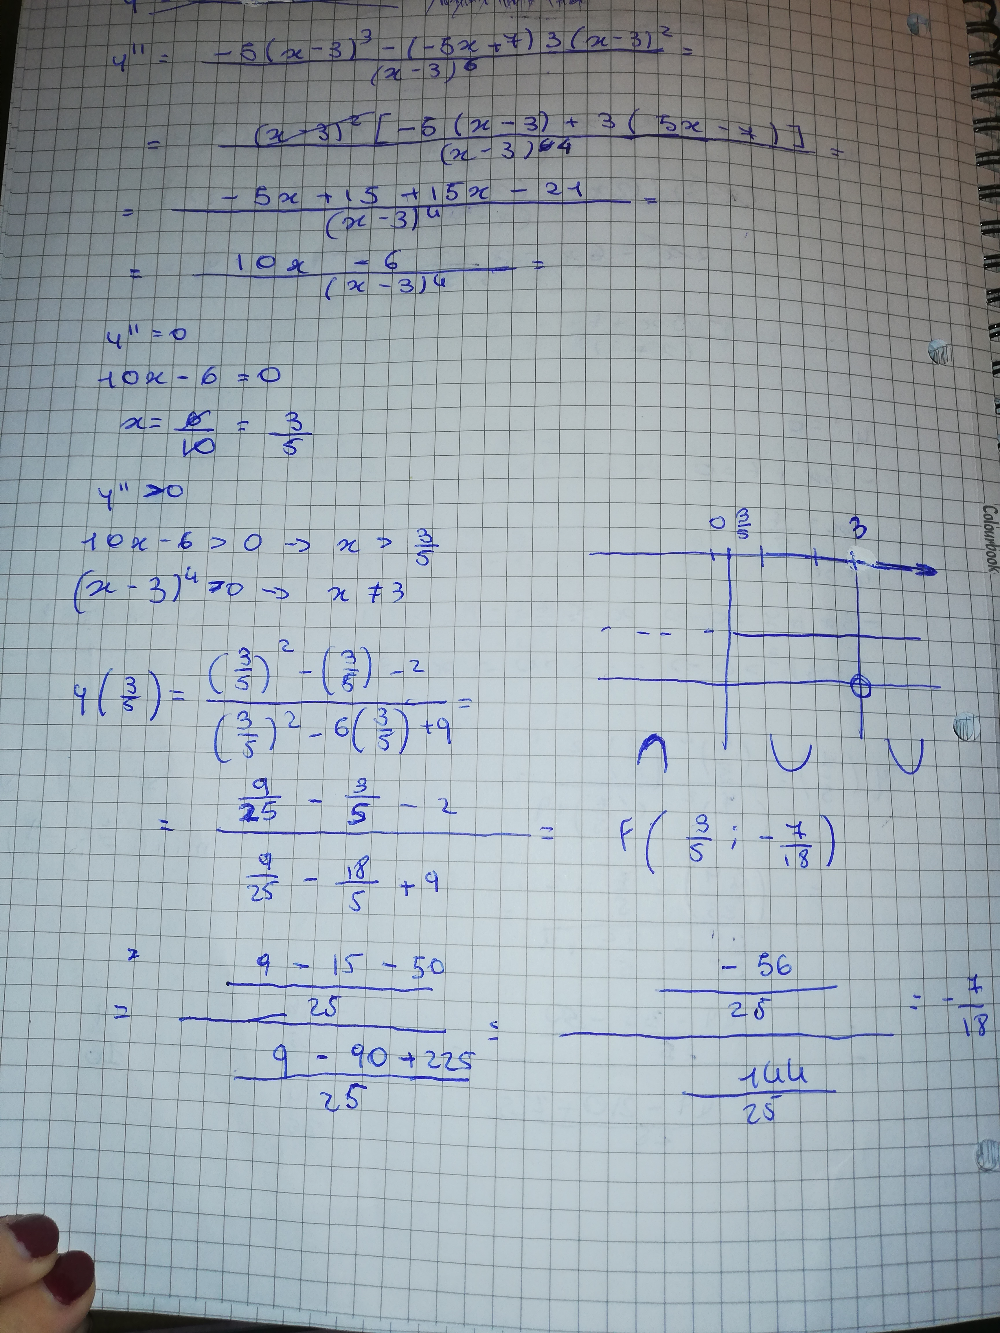 y'' = -5(x-3)^3 - (-5x+7) 3(x-3)^2 / (x-3)^6 =
= (x-3)^2 [-5(x-3) + 3(5x-7)] / (x-3)^4 =
= -5x + 15 + 15x - 21 / (x-3)^4 =
= 10x - 6 / (x-3)^4 =
y'' = 0
10x - 6 = 0
x = 6/10 = 3/5
y'' > 0
10x - 6 > 0 → x > 3/5
(x-3)^4 > 0 → x ≠ 3
0 3/5 3
y(3/5) = (3/5)^2 - (3/5) - 2 / (3/5)^2 - 6(3/5) + 9 =
= 9/25 - 3/5 - 2 / 9/25 - 18/5 + 9 =
F(3/5 ; -7/18)
= 9 - 15 - 50 / 25 / 9 - 90 + 225 / 25 = -56/25 / 144/25 = -7/18
Colourbook